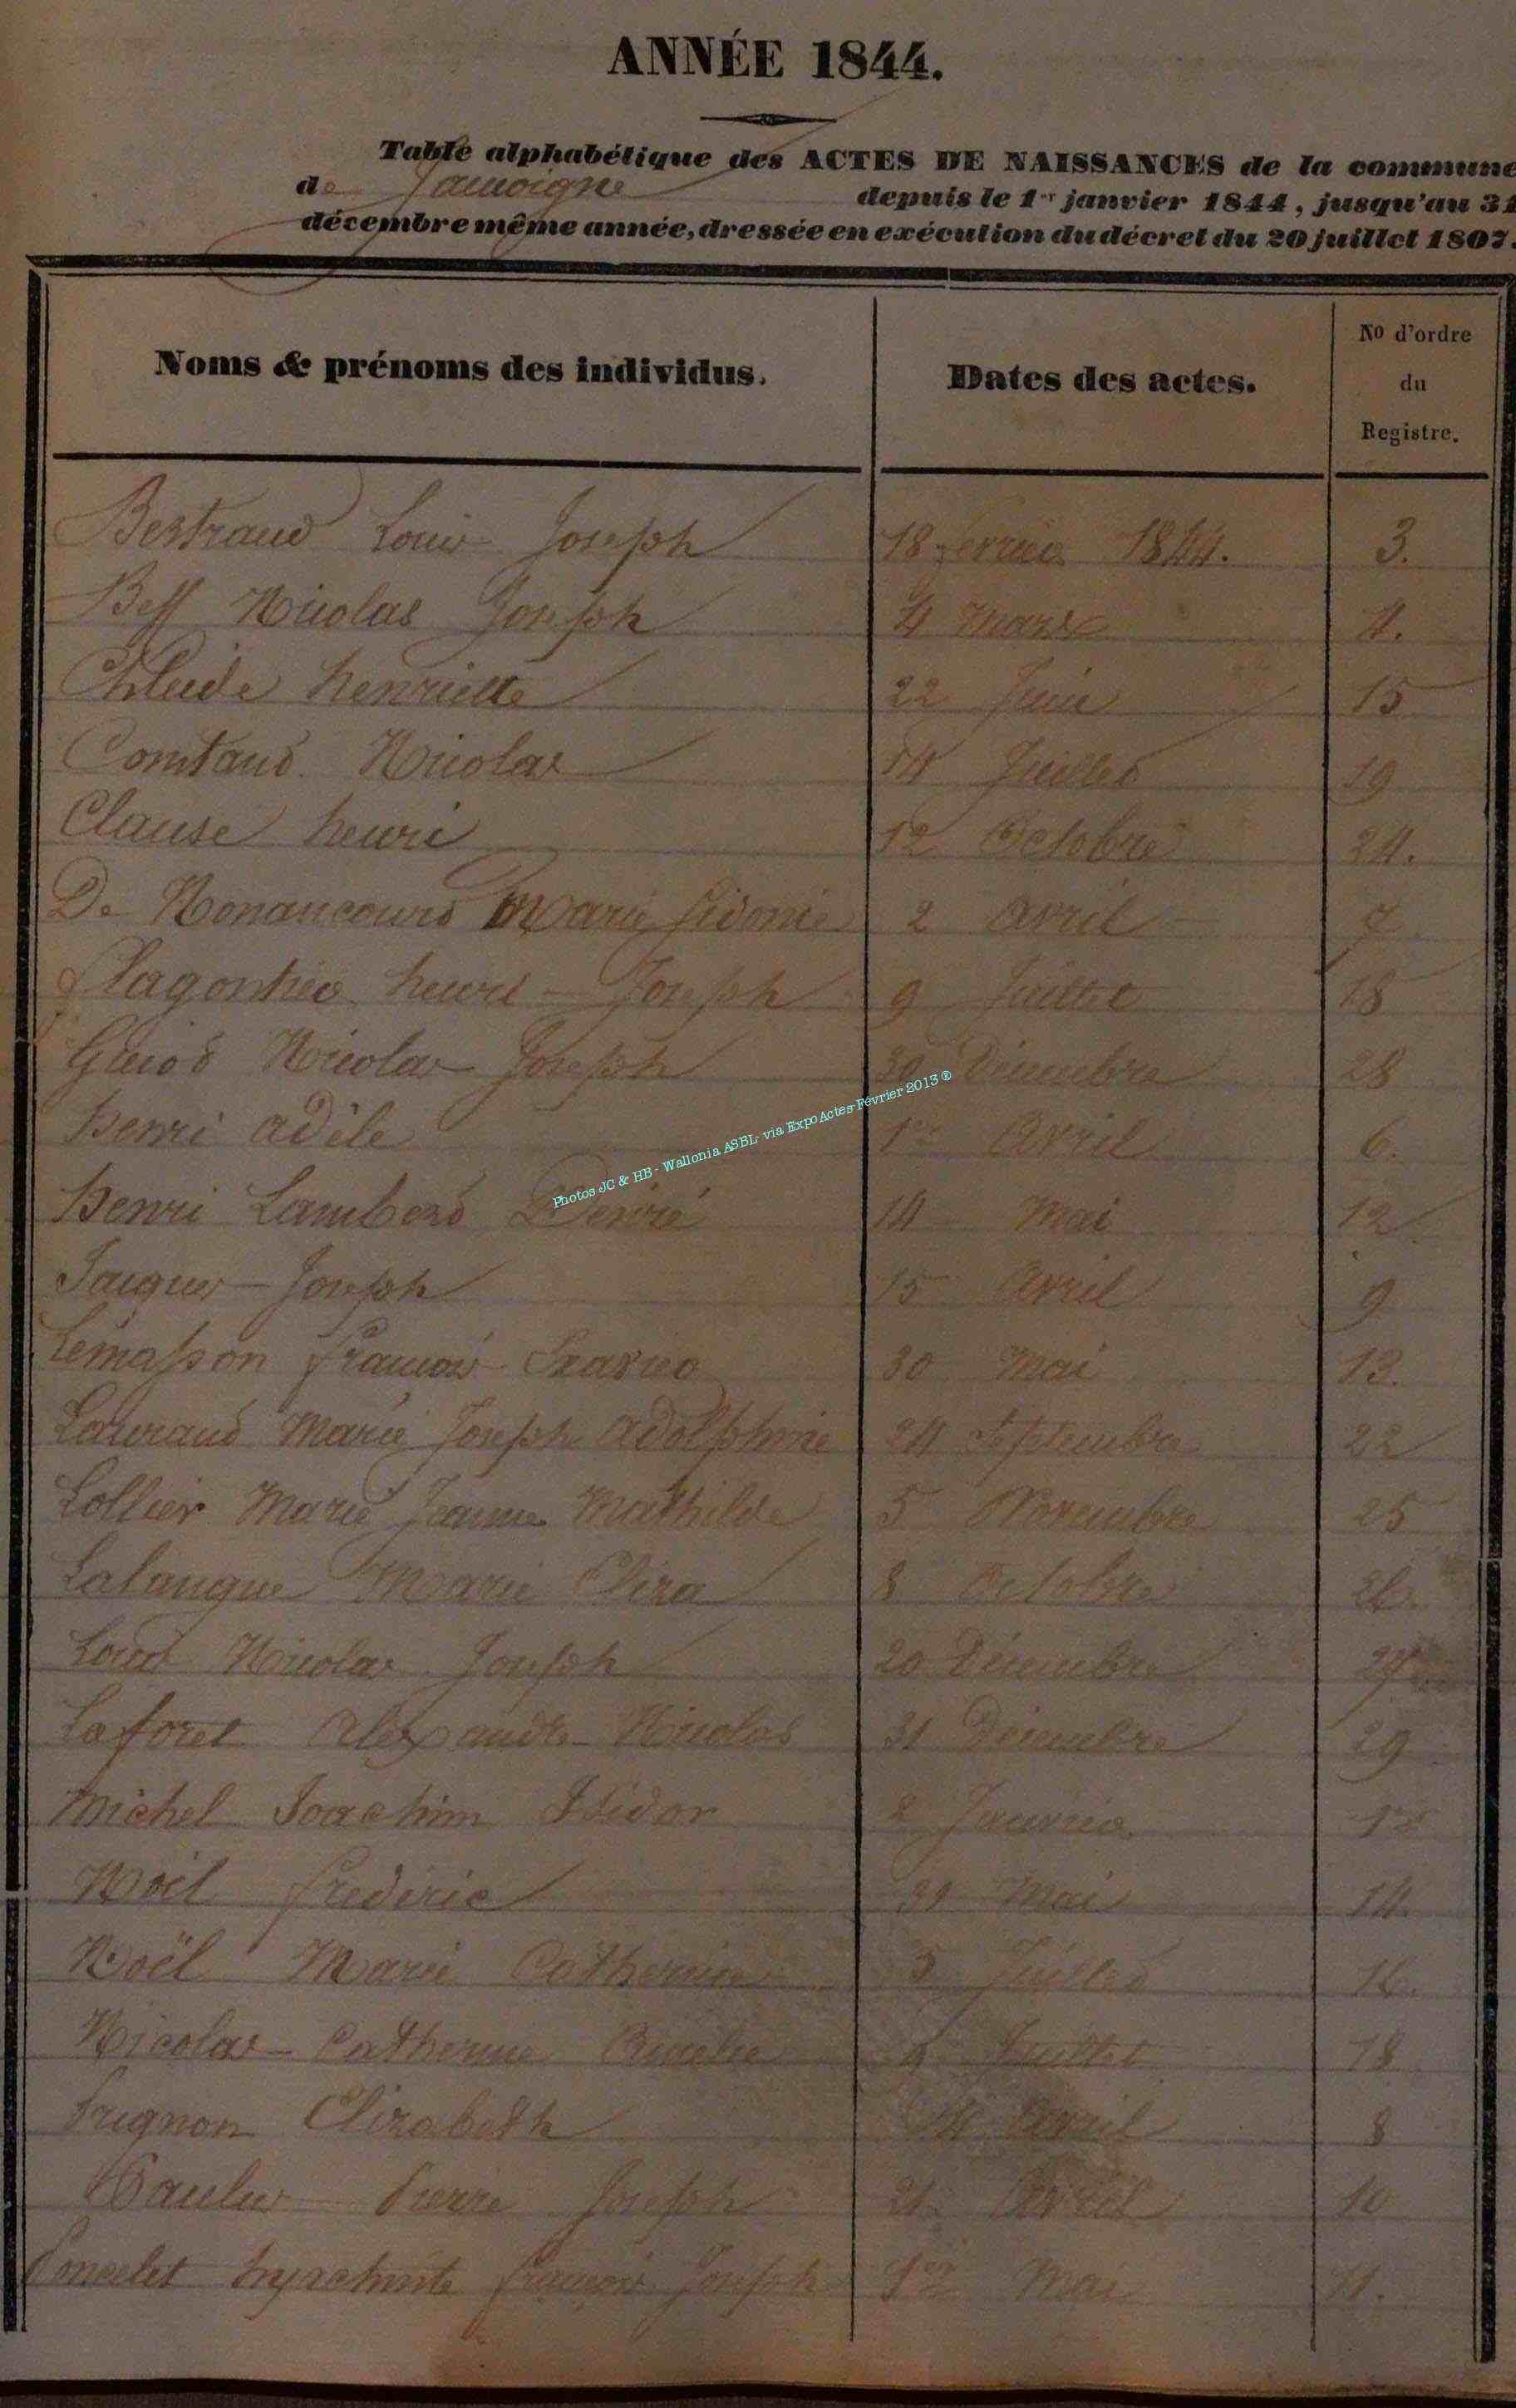 ANNÉE 1844.
Table alphabétique des ACTES DE NAISSANCES de la commune
de Jamoigne depuis le 1er janvier 1844, jusqu'au 31
décembre même année, dressée en exécution du décret du 20 juillet 1807.
Noms & prénoms des individus. Dates des actes. No d'ordre
du
Registre.
Bertrand Louis Joseph 18 1844. 3.
Nicolas Joseph 4 Mars 4.
henriette 22 Juin 15
Constant Nicolas 14 Juillet 19
Clause henri 12 Octobre 24.
De Nonancourt Marie Sidonie 2 avril 7
henri Joseph 9 Juillet 18
Guiot Nicolas Joseph 30 Décembre 28
henri adèle 1er avril 6.
Photos JC & HB - Wallonia ASBL via ExpoActes-Février 2013 ®
henri Lambert Désiré 14 Mai 12
Jacques Joseph 15 avril 9
Lemasson françois Xavier 30 Mai 13.
Laurand Marie Joseph adolphine 24 Septembre 22
Lollier Marie Jeanne Mathilde 5 Novembre 25
Lalangue Marie 8 Octobre 26.
Nicolas Joseph 20 Décembre 27
Laforet Alexandre Nicolas 31 Décembre 29
Michel Joachim Isidor Janvier
Noël frédéric 31 Mai 14
Noël Marie Catherine Juillet 16.
Nicolas Catherine Juillet 18
Elizabeth 14 avril 8
Pierre Joseph 21 avril 10
Poncelet hyacinthe françois Joseph 1er Mai 11.